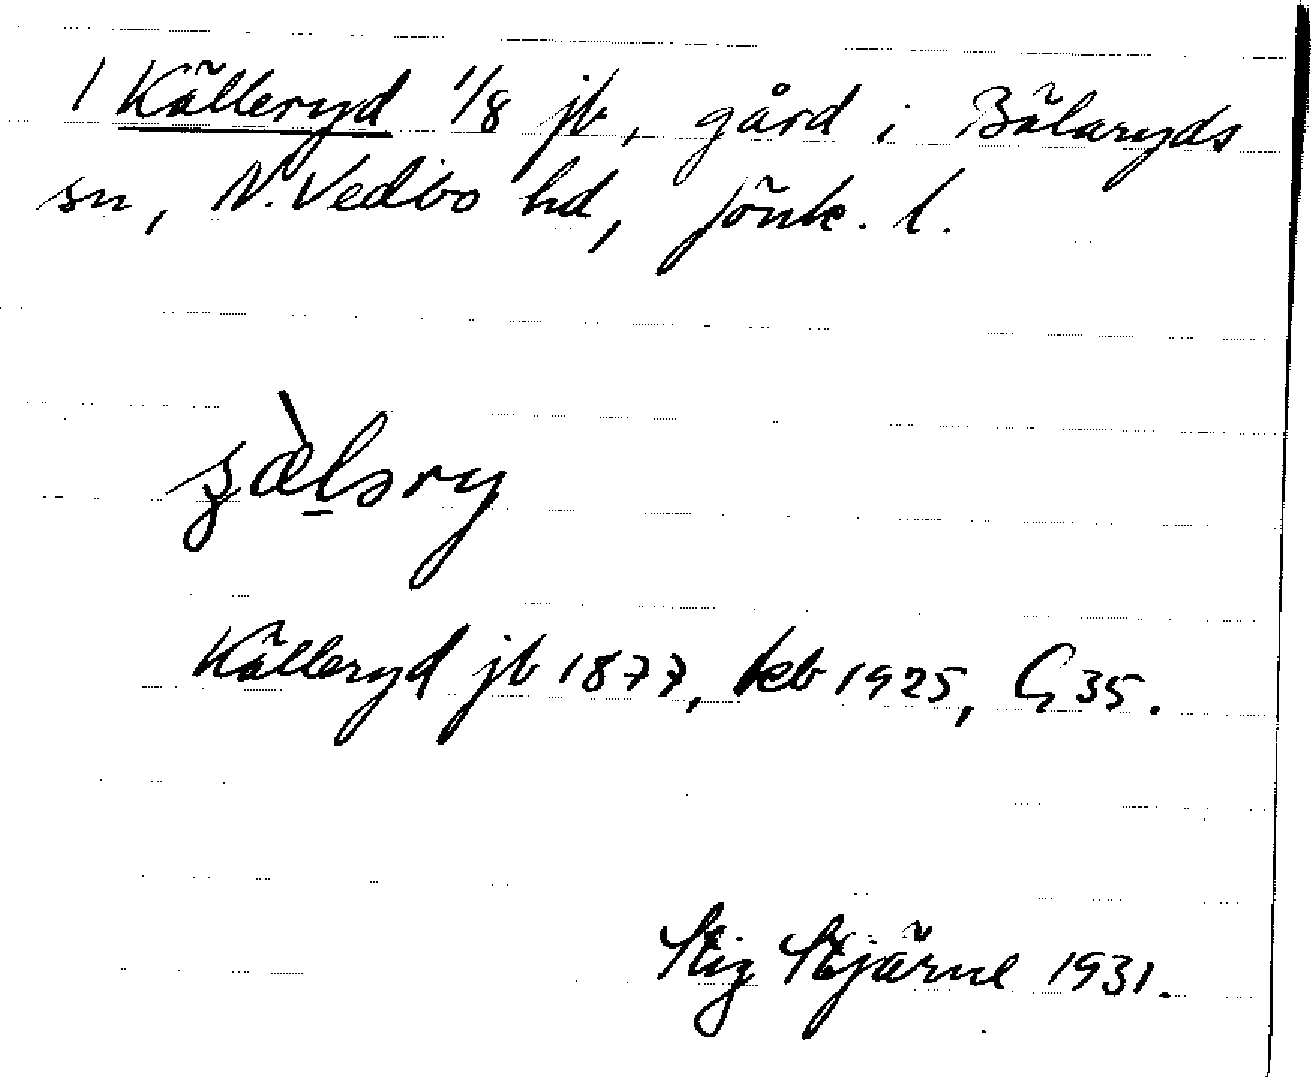 1 Källeryd 1/8 jb, gård i Bälaryds
sn, N. Vedbo hd, Jönk. l.
Källeryd jb 1877, keb 1925, G 35.
Stig Stjärne 1931.